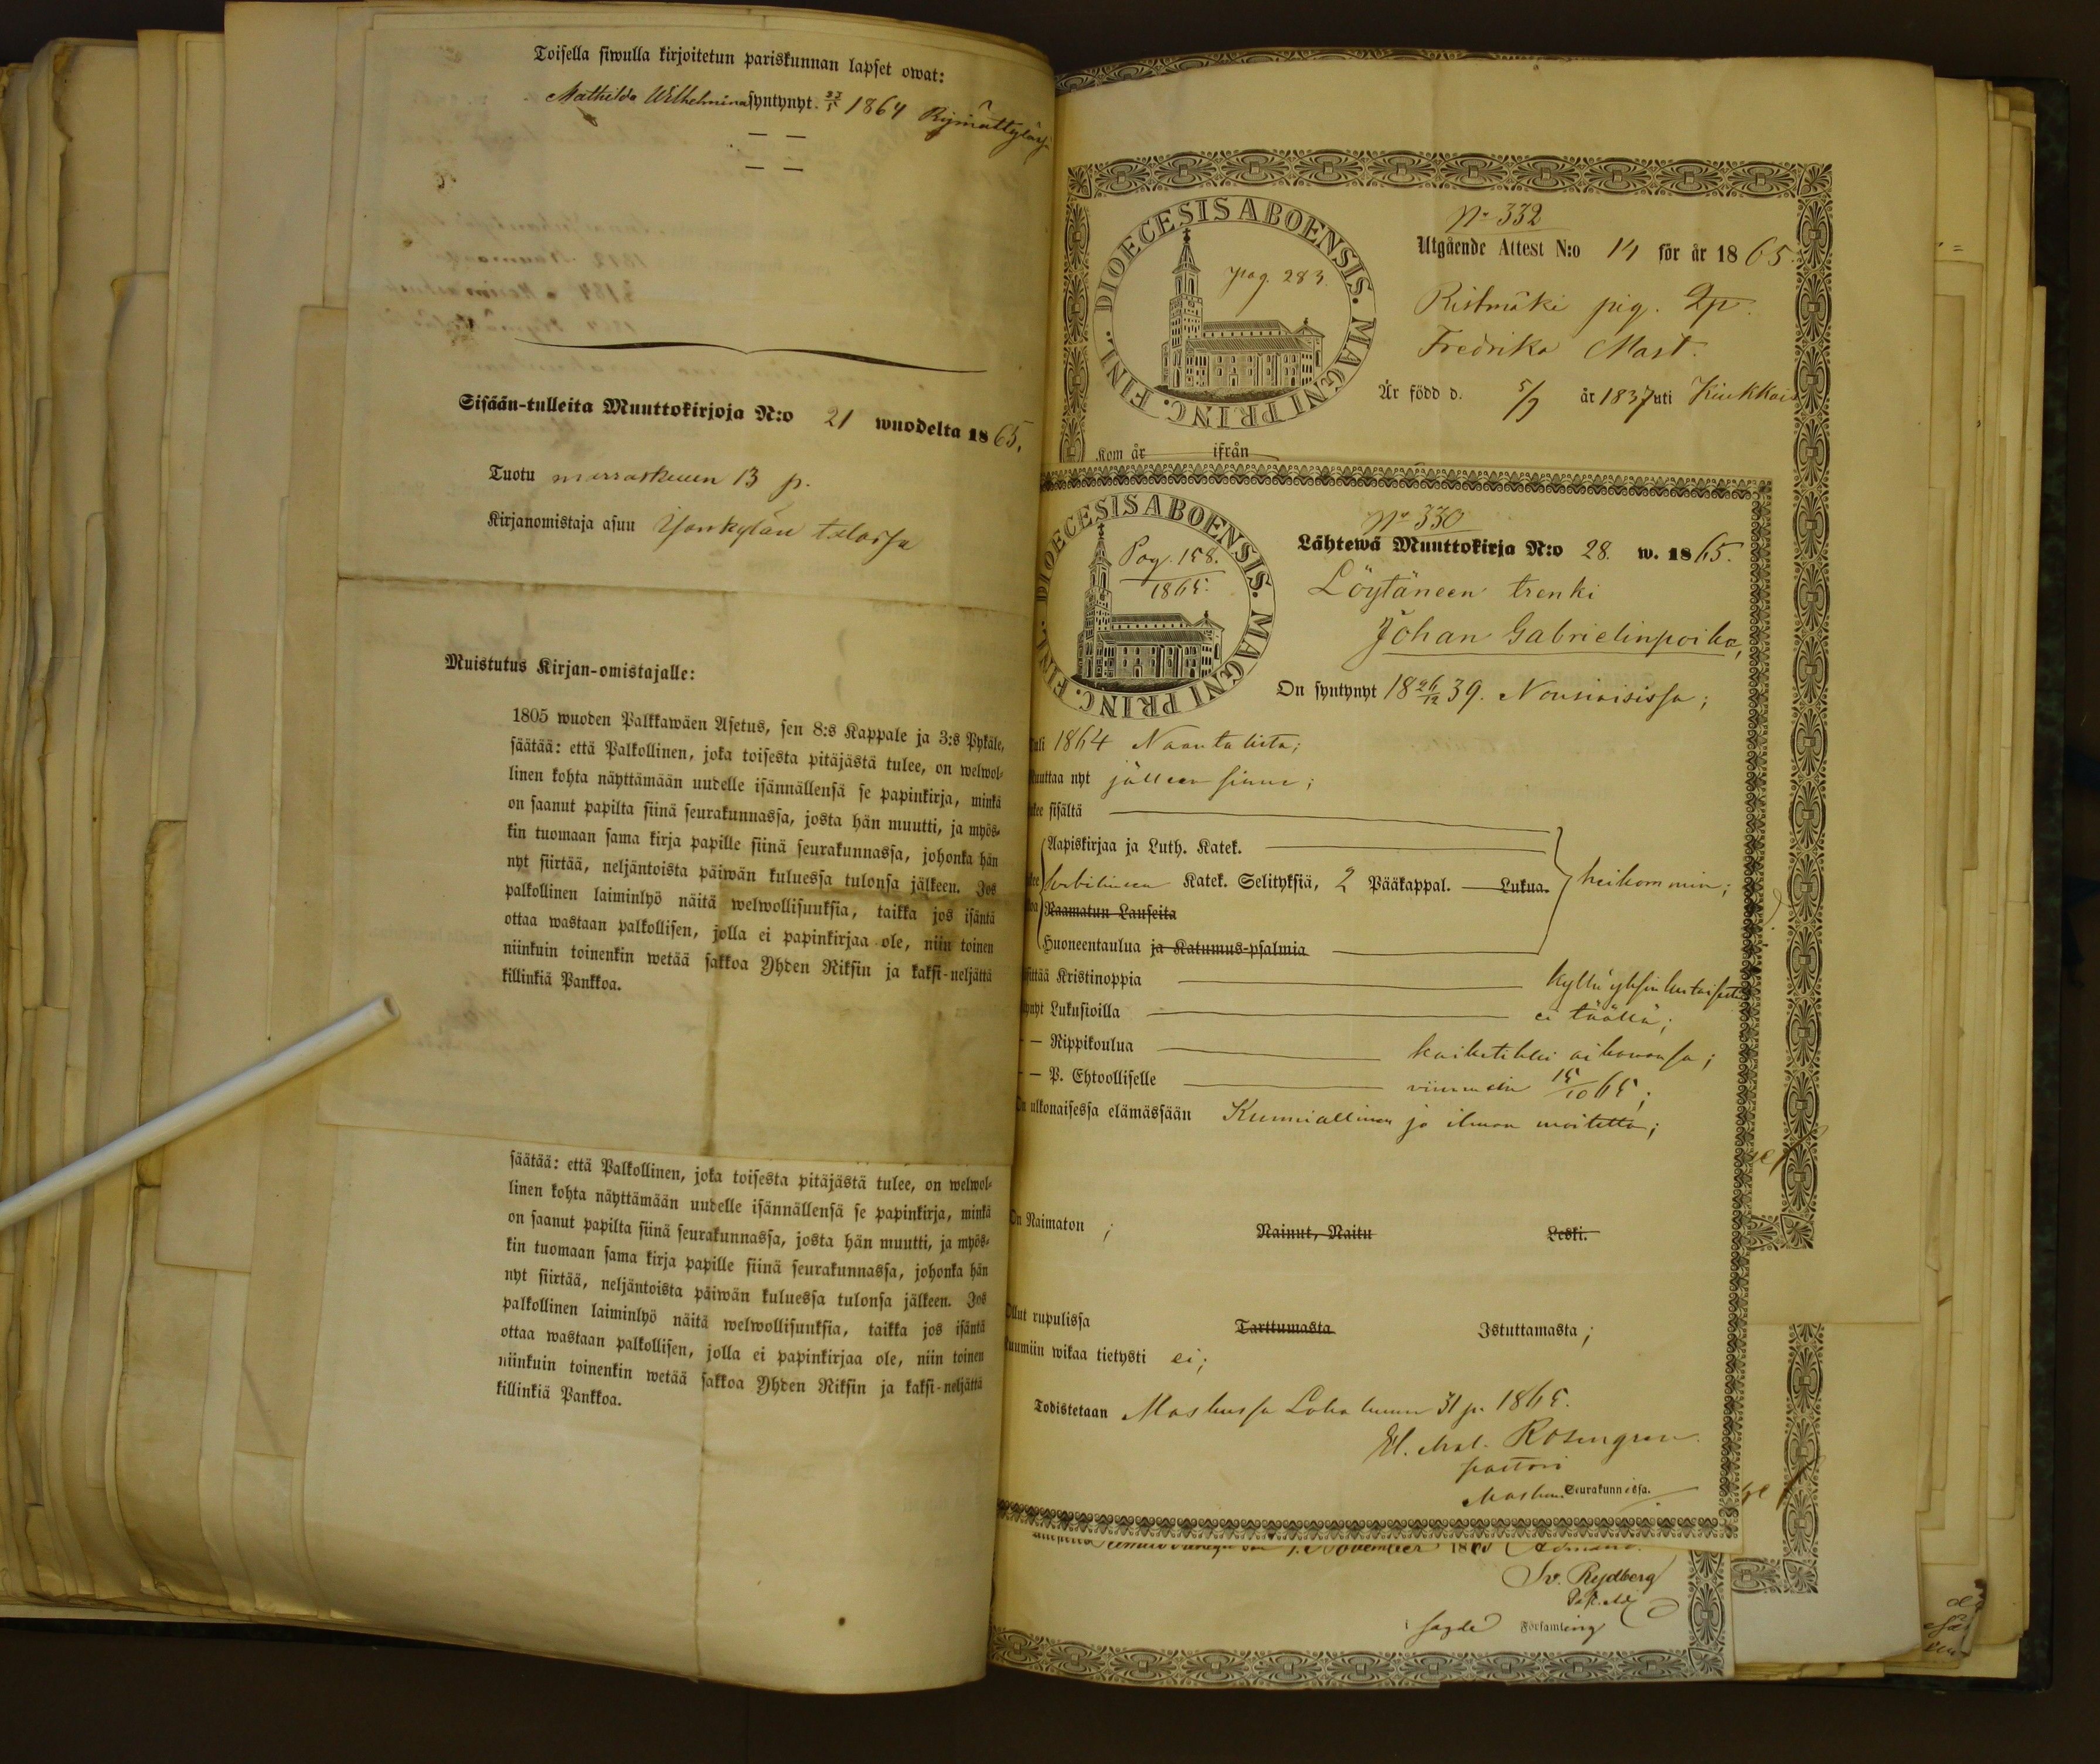 Toisella siwulla kirjoitetun pariskunnan lapset owat:
Mathilda Wilhelmina syntynyt. 27/5 1864 Rymättylässä
— —
— —
Sisään-tulleita Muuttokirjoja N:o 21 wuodelta 1865.
Tuotu marraskuun 13 p.
Kirjanomistaja asuu
Muistutus Kirjan-omistajalle:
1805 wuoden Palkkawäen Asetus, sen 8:s Kappale ja 3:s Pykäle,
säätää: että Palkollinen, joka toisesta pitäjästä tulee, on welwol-
linen kohta näyttämään uudelle isännällensä se papinkirja, minkä
on saanut papilta siinä seurakunnassa, josta hän muutti, ja myös-
kin tuomaan sama kirja papille siinä seurakunnassa, johonka hän
nyt siirtää, neljäntoista päiwän kuluessa tulonsa jälkeen. Jos
palkollinen laiminlyö näitä welwollisuuksia, taikka jos isäntä
ottaa wastaan palkollisen, jolla ei papinkirjaa ole, niin toinen
niinkuin toinenkin wetää sakkoa Yhden Riksin ja kaksi-neljättä
killinkiä Pankkoa.
säätää: että Palkollinen, joka toisesta pitäjästä tulee, on welwol-
linen kohta näyttämään uudelle isännällensä se papinkirja, minkä
on saanut papilta siinä seurakunnassa, josta hän muutti, ja myös-
kin tuomaan sama kirja papille siinä seurakunnassa, johonka hän
nyt siirtää, neljäntoista päiwän kuluessa tulonsa jälkeen. Jos
palkollinen laiminlyö näitä welwollisuuksia, taikka jos isäntä
ottaa wastaan palkollisen, jolla ei papinkirjaa ole, niin toinen
niinkuin toinenkin wetää sakkoa Yhden Riksin ja kaksi-neljättä
killinkiä Pankkoa.
DIOECESIS ABOENSIS. MAGNI PRINC. FINL.
pag. 283.
No 332
Utgående Attest N:o 14 för år 1865.
Ristmäki pig.
Fredrika Mast.
Är född d. 5/9 år 1837 uti Kiukkais
Kom år ifrån
DIOECESIS ABOENSIS. MAGNI PRINC. FINL.
Pag. 158.
1865.
No 330
Lähtewä Muuttokirja N:o 28. w. 1865.
Löytäneen trenki
Johan Gabrielinpoika,
On syntynyt 18 26/12 39. Nousiaisissa;
Tuli 1864 Naantalista;
Muuttaa nyt jälleen sinne;
Lukee sisältä
Aapiskirjaa ja Luth. Katek.
Katek. Selityksiä, 2 Pääkappal. — Lukua.
heikommin;
Raamatun Lauseita
Huoneentaulua ja Katumus-psalmia
Kristinoppia kyllä yksinkertaisesti
Lukusioilla ei täällä;
— Rippikoulua
— P. Ehtoolliselle viimmein 15/10 65;
On ulkonaisessa elämässään Kunniallinen ja ilman moitetta;
On Naimaton ; Nainut, Naitu Leski.
Ollut rupulissa Tarttumasta Istuttamasta ;
Ruumiin wikaa tietysti ei;
Todistetaan Maskussa Lokakuun 31 p. 1865.
Rosengren.
pastori
Maskun Seurakunnassa.
November 1865
Sv. Rydberg
sagde Församling